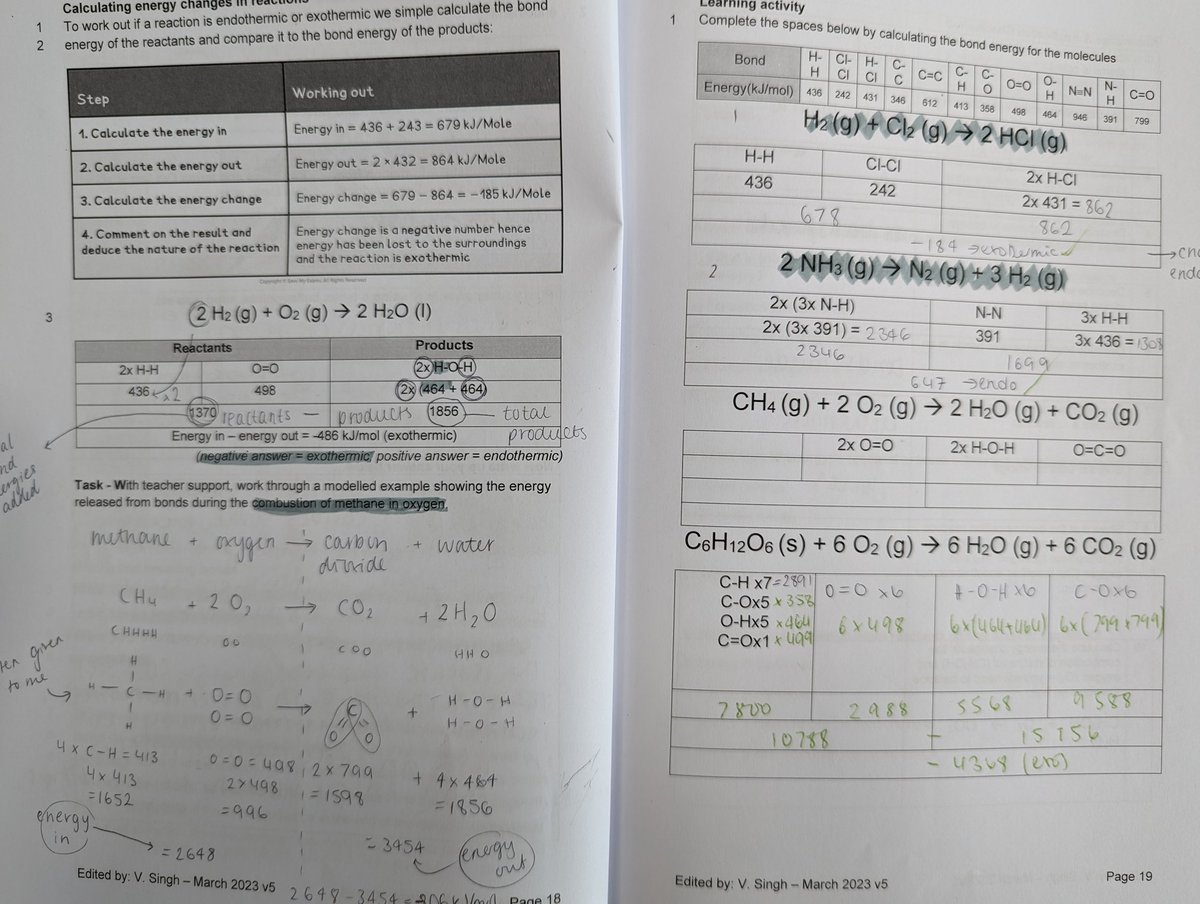 Calculating energy changes in reactions
1 To work out if a reaction is endothermic or exothermic we simple calculate the bond
2 energy of the reactants and compare it to the bond energy of the products:
Step Working out
1. Calculate the energy in Energy in = 436 + 243 = 679 kJ/Mole
2. Calculate the energy out Energy out = 2 × 432 = 864 kJ/Mole
3. Calculate the energy change Energy change = 679 – 864 = –185 kJ/Mole
4. Comment on the result and Energy change is a negative number hence
deduce the nature of the reaction energy has been lost to the surroundings
and the reaction is exothermic
3 2 H2 (g) + O2 (g) → 2 H2O (l)
Reactants Products
2x H-H O=O 2x H-O-H
436 x2 498 2x (464 + 464)
1370 reactants – products 1856 total
products
Energy in – energy out = -486 kJ/mol (exothermic)
(negative answer = exothermic, positive answer = endothermic)
added
Task - With teacher support, work through a modelled example showing the energy
released from bonds during the combustion of methane in oxygen.
methane + oxygen → carbon + water
dioxide
CH4 + 2 O2 → CO2 + 2H2O
CHHHH OO COO HHO
given
to me
H
H – C – H + O=O → C + H-O-H
H O=O O O H-O-H
4 x C-H = 413 O=O = 498 2 x 799 + 4 x 464
4 x 413 2 x 498 = 1598 = 1856
=1652 =996
energy
in
= 2648 = 3454 energy
out
Edited by: V. Singh – March 2023 v5
2648 - 3454 =
Page 18
Learning activity
1 Complete the spaces below by calculating the bond energy for the molecules
Bond H-H Cl-Cl H-Cl C-C C=C C-H C-O O=O O-H N≡N N-H C=O
Energy(kJ/mol) 436 242 431 346 612 413 358 498 464 946 391 799
1 H2 (g) + Cl2 (g) → 2 HCl (g)
H-H Cl-Cl 2x H-Cl
436 242 2x 431 = 862
678 862
-184 → exothermic
2 2 NH3 (g) → N2 (g) + 3 H2 (g)
2x (3x N-H) N-N 3x H-H
2x (3x 391) = 2346 391 3x 436 = 1308
2346 1699
647 → endo
CH4 (g) + 2 O2 (g) → 2 H2O (g) + CO2 (g)
2x O=O 2x H-O-H O=C=O
C6H12O6 (s) + 6 O2 (g) → 6 H2O (g) + 6 CO2 (g)
C-H x7 = 2891 O=O x6 H-O-H x6 C-O x6
C-Ox5 x 358
O-Hx5 x 464 6 x 498 6x(464+464) 6x(799+799)
C=Ox1 x 499
7800 2988 5568 9588
10788 - 15156
- 4368 (exo)
Edited by: V. Singh – March 2023 v5
Page 19